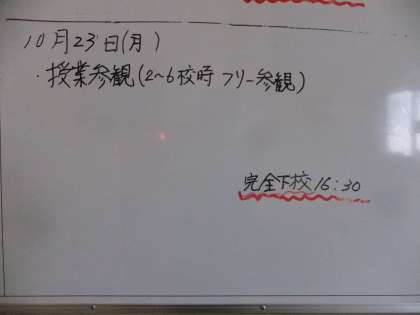 10月23日(月)
・授業参観(2~6校時 フリー参観)
完全下校16:30